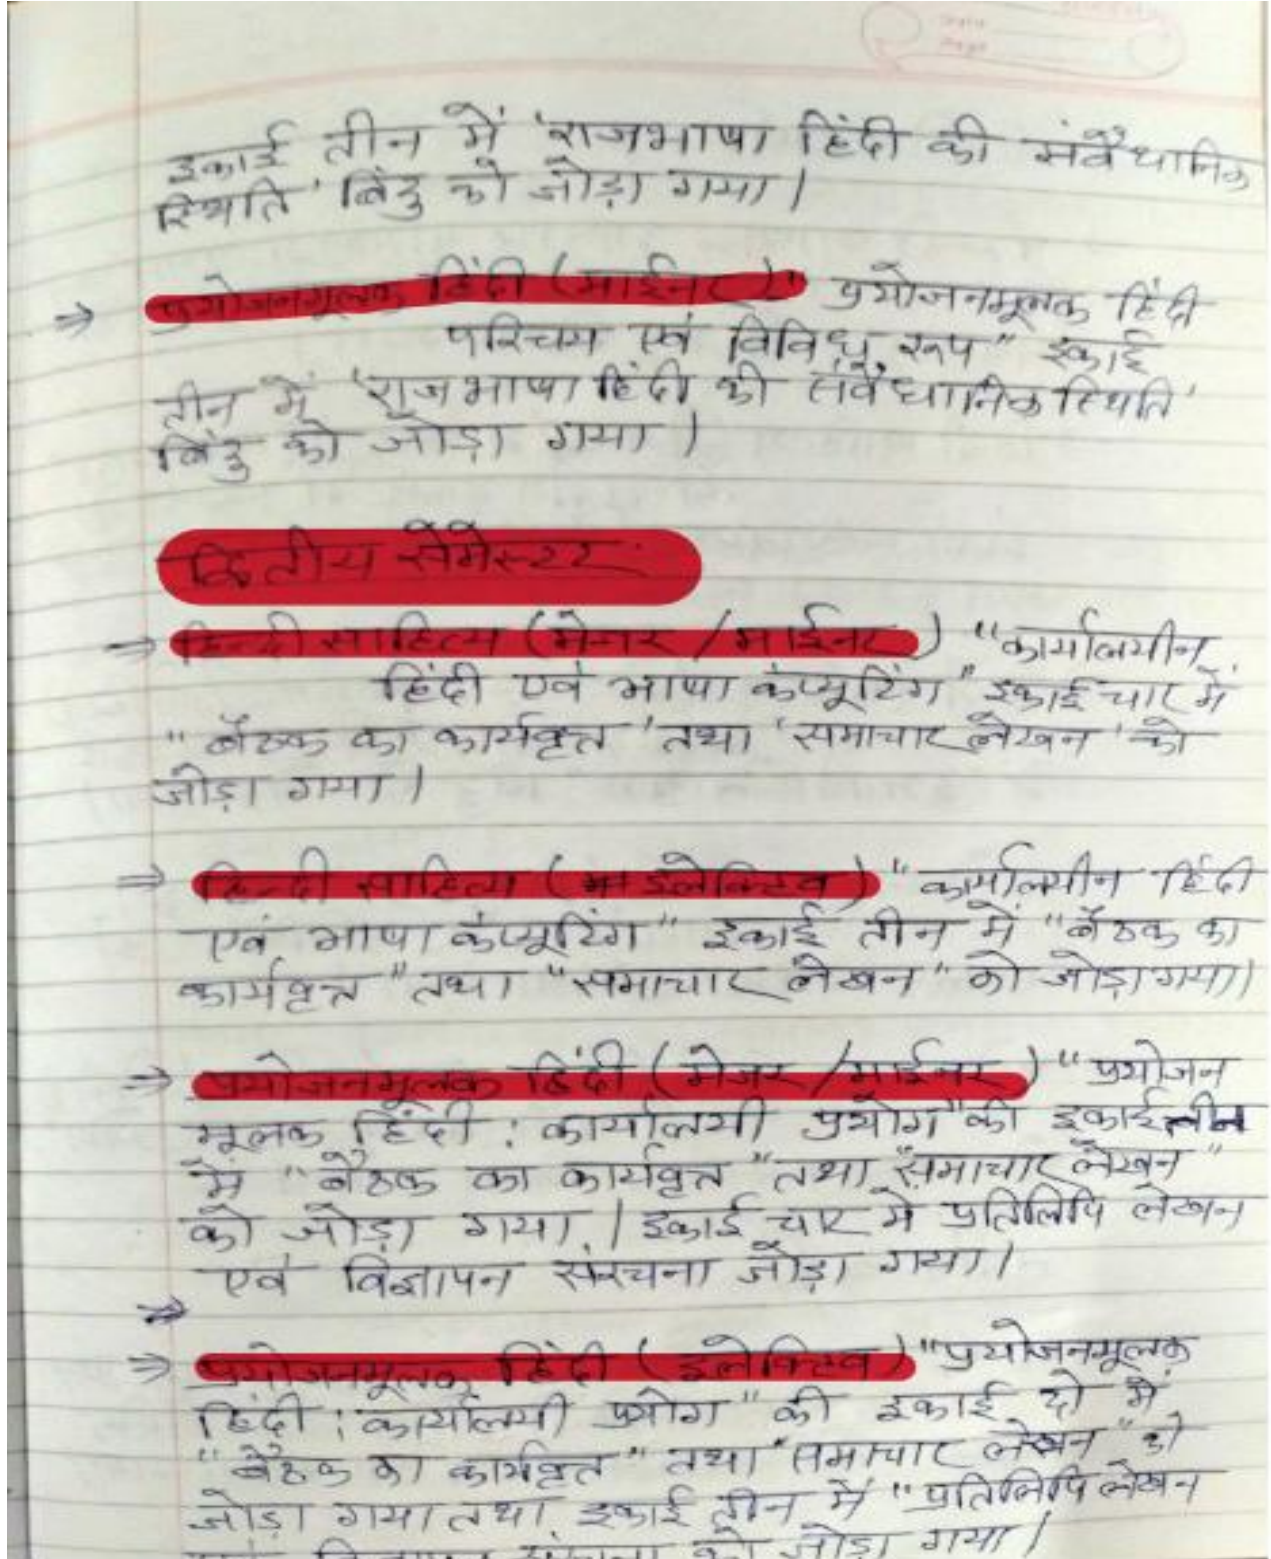 इकाई तीन में 'राजभाषा हिंदी की संवैधानिक
स्थिति' बिंदु को जोड़ा गया।
⇒ प्रयोजनमूलक हिंदी (माईनर)" प्रयोजनमूलक हिंदी
परिचय एवं विविध रूप" इकाई
तीन में 'राजभाषा हिंदी की संवैधानिक स्थिति'
बिंदु को जोड़ा गया।
द्वितीय सेमेस्टर
⇒ हिन्दी साहित्य (मेजर / माईनर) "कार्यालयीन
हिंदी एवं भाषा कंप्यूटिंग" इकाई चार में
"बैठक का कार्यवृत्त' तथा 'समाचार लेखन' को
जोड़ा गया।
⇒ हिन्दी साहित्य ( इलेक्टिव) "कार्यालयीन हिंदी
एवं भाषा कंप्यूटिंग" इकाई तीन में "बैठक का
कार्यवृत्त" तथा "समाचार लेखन" को जोड़ा गया।
⇒ प्रयोजनमूलक हिंदी (मेजर /माईनर) "प्रयोजन
मूलक हिंदी : कार्यालयी प्रयोग" की इकाई तीन
में "बैठक का कार्यवृत्त" तथा "समाचार लेखन"
को जोड़ा गया। इकाई चार में प्रतिलिपि लेखन
एवं विज्ञापन संरचना जोड़ा गया।
⇒ प्रयोजनमूलक हिंदी (इलेक्टिव) "प्रयोजनमूलक
हिंदी : कार्यालयी प्रयोग" की इकाई दो में
"बैठक का कार्यवृत्त" तथा "समाचार लेखन" को
जोड़ा गया तथा इकाई तीन में "प्रतिलिपि लेखन
को जोड़ा गया।